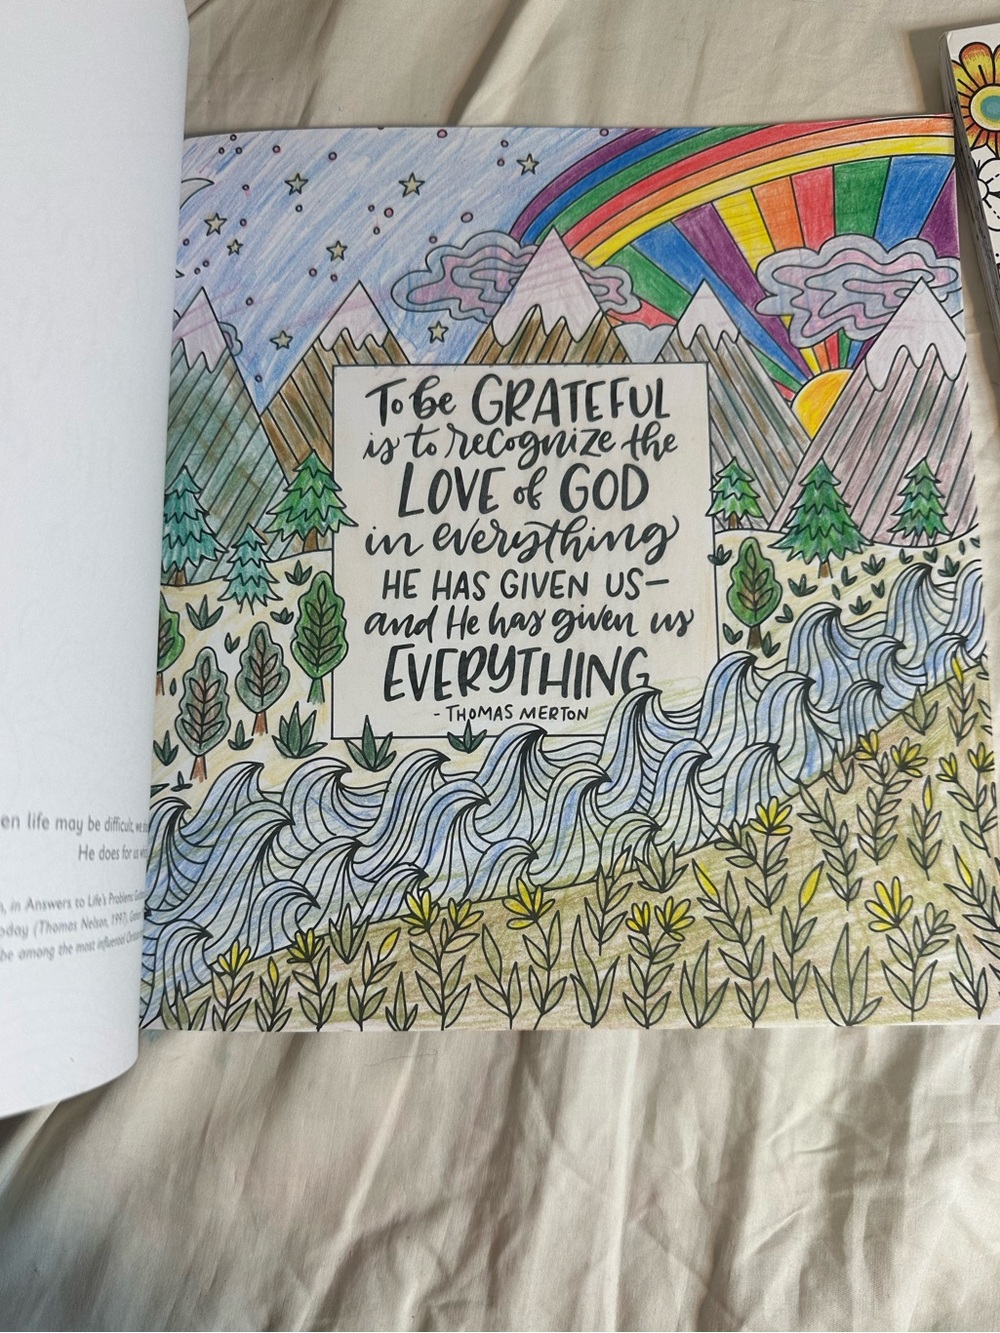 To be GRATEFUL
is to recognize the
LOVE of GOD
in everything
HE HAS GIVEN US—
and He has given us
EVERYTHING
- THOMAS MERTON
en life may be difficult, we
He does for us
, in Answers to Life's Problems
oday (Thomas Nelson, 1997),
be among the most influential